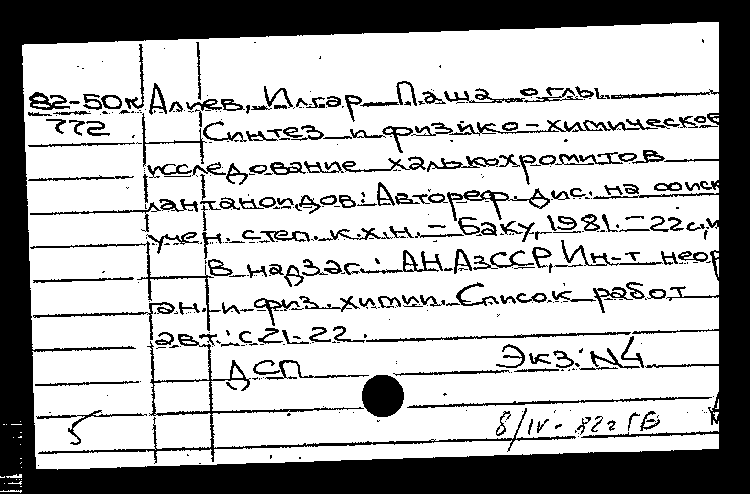 82-50к Алиев, Илгар Паша оглы
772 Синтез и физико-химическое
исследование халькохромитов
лантаноидов: Автореф. дис. на соиск
учен. степ. к.х.н. - Баку, 1981. - 22с,
В надзаг.: АН АзССР, Ин-т неор
ган. и физ. химии. Список работ
авт.: с 21-22.
ДСП Экз. N4
5 8/IV-82г ГВ